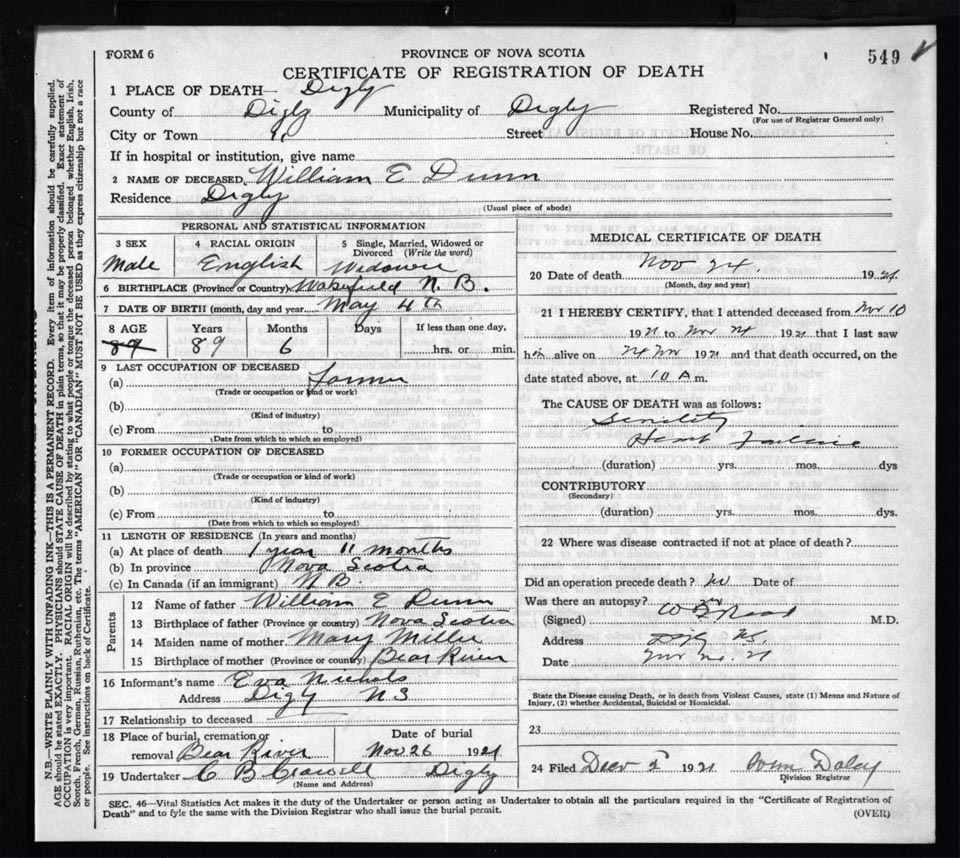 FORM 6
PROVINCE OF NOVA SCOTIA
549
CERTIFICATE OF REGISTRATION OF DEATH
1 PLACE OF DEATH— Digby
County of Digby Municipality of Digby Registered No.
(For use of Registrar General only)
City or Town Street House No.
If in hospital or institution, give name
2 NAME OF DECEASED William E Dunn
Residence Digby
(Usual place of abode)
PERSONAL AND STATISTICAL INFORMATION
3 SEX 4 RACIAL ORIGIN 5 Single, Married, Widowed or Divorced (Write the word)
Male English Widower
6 BIRTHPLACE (Province or Country) Wakefield N. B.
7 DATE OF BIRTH (month, day and year) May 4th
8 AGE Years Months Days If less than one day,
89 89 6 hrs. or min.
9 LAST OCCUPATION OF DECEASED
(a) Farmer
(Trade or occupation or kind or work)
(b)
(Kind of industry)
(c) From to
(Date from which to which so employed)
10 FORMER OCCUPATION OF DECEASED
(a)
(Trade or occupation or kind of work)
(b)
(Kind of industry)
(c) From to
(Date from which to which so employed)
11 LENGTH OF RESIDENCE (In years and months)
(a) At place of death 1 year 11 months
(b) In province Nova Scotia
(c) In Canada (if an immigrant) N B.
Parents
12 Name of father William E Dunn
13 Birthplace of father (Province or country) Nova Scotia
14 Maiden name of mother Mary Miller
15 Birthplace of mother (Province or country) Bear River
16 Informant's name Eva Nichols
Address Digby N S
17 Relationship to deceased
18 Place of burial, cremation or removal Bear River
Date of burial Nov 26 1921
19 Undertaker Digby
(Name and Address)
MEDICAL CERTIFICATE OF DEATH
20 Date of death Nov 24. 1921
(Month, day and year)
21 I HEREBY CERTIFY, that I attended deceased from Nov 10
1921 to Nov 24 1921 that I last saw
him alive on 24 Nov 1921 and that death occurred, on the
date stated above, at 10 A m.
The CAUSE OF DEATH was as follows:
Senility
Heart Failure
(duration) yrs. mos. dys
CONTRIBUTORY
(Secondary)
(duration) yrs. mos. dys.
22 Where was disease contracted if not at place of death?
Did an operation precede death? no Date of
Was there an autopsy? no
(Signed) M.D.
Address Digby NS
Date
State the Disease causing Death, or in death from Violent Causes, state (1) Means and Nature of
Injury, (2) whether Accidental, Suicidal or Homicidal.
23
24 Filed 1921 Daley
Division Registrar
SEC. 46—Vital Statistics Act makes it the duty of the Undertaker or person acting as Undertaker to obtain all the particulars required in the "Certificate of Registration of
Death" and to fyle the same with the Division Registrar who shall issue the burial permit.
(OVER)
N.B.—WRITE PLAINLY WITH UNFADING INK—THIS IS A PERMANENT RECORD. Every item of information should be carefully supplied.
AGE should be stated EXACTLY. PHYSICIANS should STATE CAUSE OF DEATH in plain terms, so that it may be properly classified. Exact statement of
OCCUPATION is very important. RACIAL ORIGIN will be described by stating to what people or tongue the deceased person belonged whether English, Irish,
Scotch, French, German, Russian, Ruthenian, etc. The terms "AMERICAN" OR "CANADIAN" MUST NOT BE USED as they express citizenship but not a race
or people. See instructions on back of Certificate.